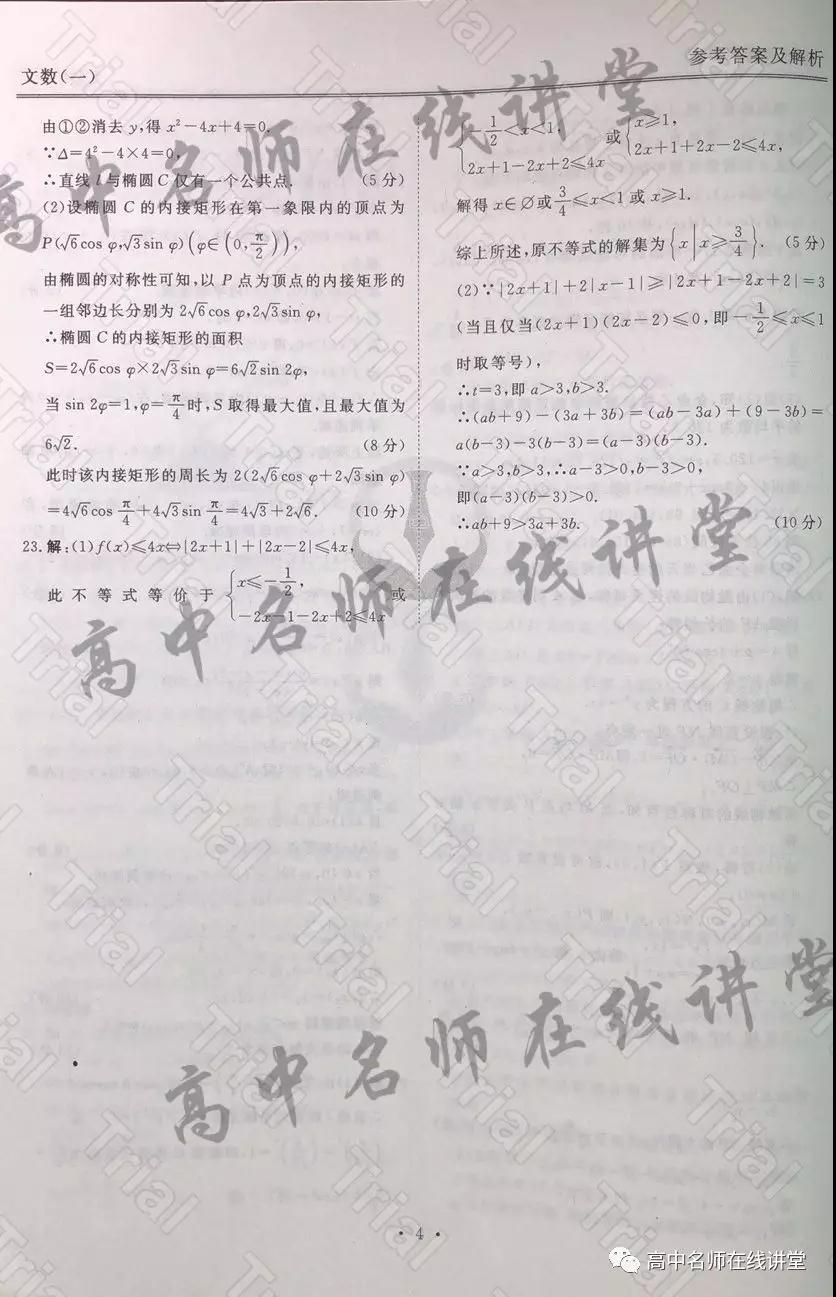 文数(一)
参考答案及解析
由①②消去 y,得 x²-4x+4=0.
∵Δ=4²-4×4=0,
∴直线 l 与椭圆 C 仅有一个公共点. (5 分)
(2)设椭圆 C 的内接矩形在第一象限内的顶点为
P(√6cos φ,√3sin φ)(φ∈(0,π/2)),
由椭圆的对称性可知,以 P 点为顶点的内接矩形的
一组邻边长分别为 2√6cos φ,2√3sin φ,
∴椭圆 C 的内接矩形的面积
S=2√6cos φ×2√3sin φ=6√2sin 2φ,
当 sin 2φ=1,φ=π/4时,S 取得最大值,且最大值为
6√2. (8 分)
此时该内接矩形的周长为 2(2√6cos φ+2√3sin φ)
=4√6cos π/4+4√3sin π/4=4√3+2√6. (10 分)
23.解:(1)f(x)≤4x⇔|2x+1|+|2x-2|≤4x,
此不等式等价于{x≤-1/2, -2x-1-2x+2≤4x 或
{-1/2<x<1, 2x+1-2x+2≤4x 或{x≥1, 2x+1+2x-2≤4x,
解得 x∈∅或3/4≤x<1 或 x≥1.
综上所述,原不等式的解集为{x|x≥3/4}. (5 分)
(2)∵|2x+1|+2|x-1|≥|2x+1-2x+2|=3
(当且仅当(2x+1)(2x-2)≤0,即-1/2≤x≤1
时取等号),
∴t=3,即 a>3,b>3.
∴(ab+9)-(3a+3b)=(ab-3a)+(9-3b)=
a(b-3)-3(b-3)=(a-3)(b-3).
∵a>3,b>3,∴a-3>0,b-3>0,
即(a-3)(b-3)>0.
∴ab+9>3a+3b. (10 分)
高中名师在线讲堂
高中名师在线讲堂
高中名师在线讲堂
Trial
· 4 ·
高中名师在线讲堂